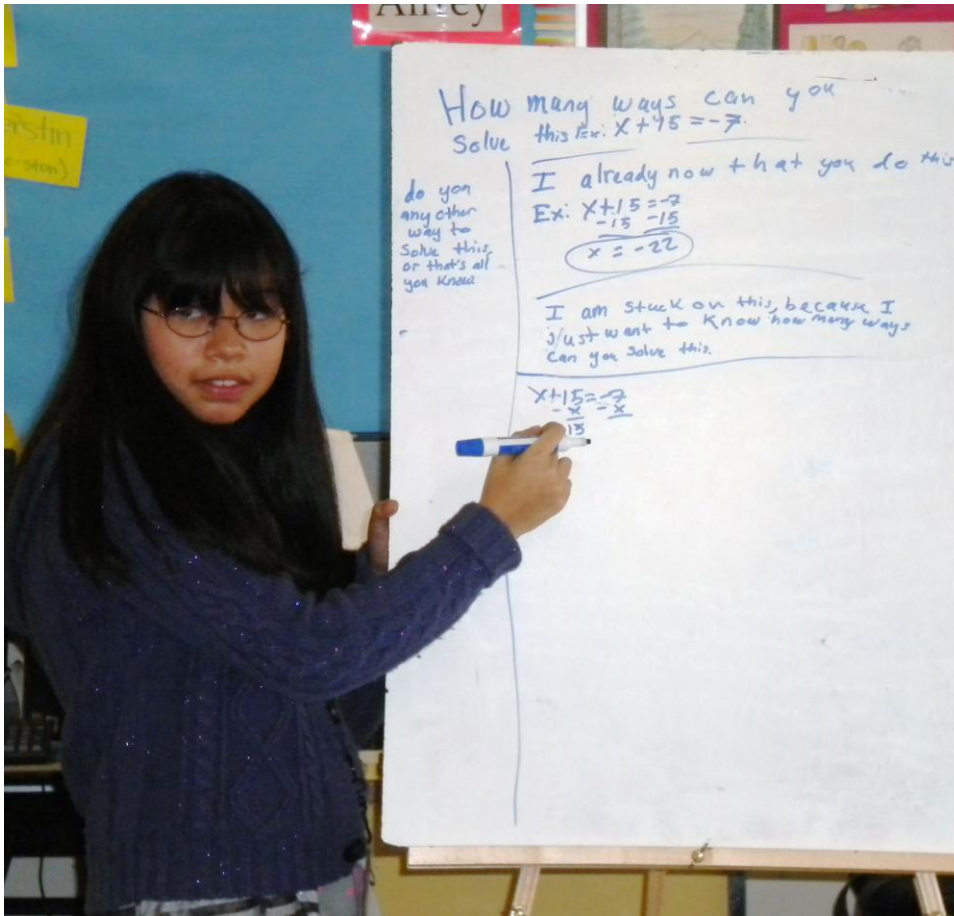 How many ways can you
Solve this Ex: x + 15 = -7.
do you
any other
way to
Solve this,
or that's all
you know
I already now that you do this
Ex: x + 15 = -7
-15 -15
x = -22
I am stuck on this, because I
just want to know how many ways
can you solve this.
x+15=-7
- x - x
15